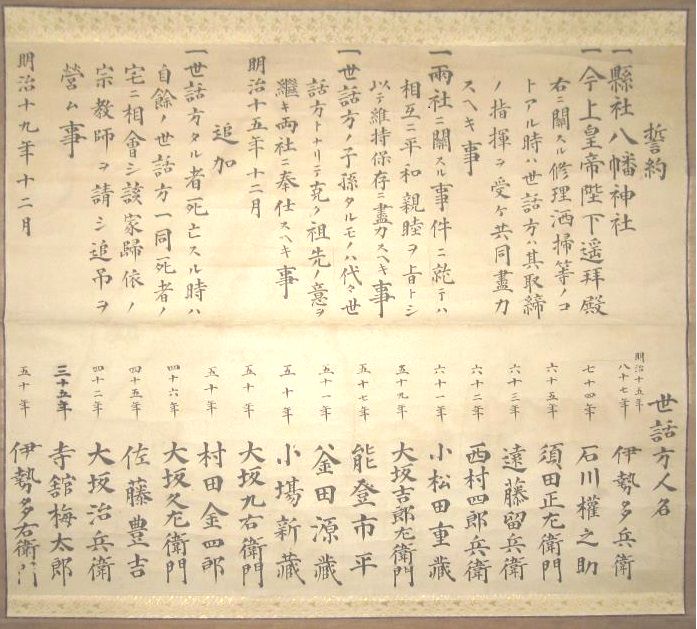 誓約
一縣社八幡神社
一今上皇帝陛下遥拜殿
右ニ關スル修理洒掃等ノコ
トアル時ハ世話方ハ其取締
ノ指揮ヲ受ケ共同盡力
スヘキ事
一兩社ニ關スル事件ニ就テハ
相互ニ平和親睦ヲ旨トシ
以テ維持保存ニ盡力スヘキ事
一世話方ノ子孫タルモノハ代々世
話方トナリテ克ク祖先ノ意ヲ
繼キ両社ニ奉仕スヘキ事
明治十五年十二月
追加
一世話方タル者死亡スル時ハ
自餘ノ世話方一同死者ノ
宅ニ相會シ該家歸依ノ
宗教師ヲ請シ追吊ヲ
營ム事
明治十九年十二月
世話方人名
明治十五年
八十七年 伊勢多兵衛
七十四年 石川權之助
六十五年 須田正左衛門
六十三年 遠藤留兵衛
六十二年 西村四郎兵衛
六十一年 小松田重藏
五十九年 大坂吉郎左衛門
五十七年 能登市平
五十一年 釜田源藏
五十年 小場新藏
五十年 大坂九右衛門
五十年 村田金四郎
四十六年 大坂久左衛門
四十五年 佐藤豊吉
四十二年 大坂治兵衛
三十五年 寺舘梅太郎
五十年 伊勢多右衛門